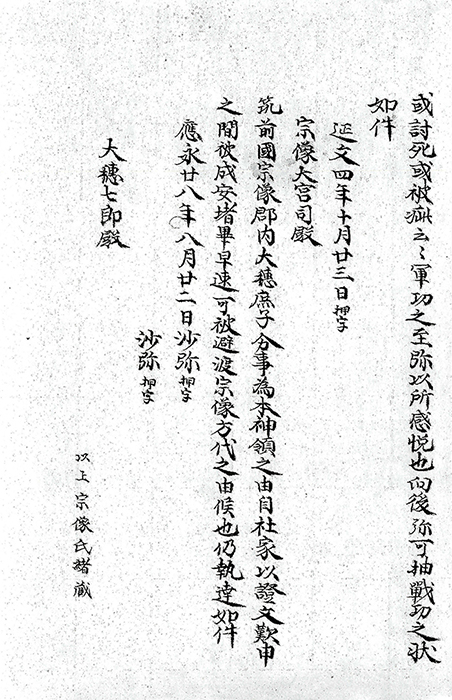 或討死或被疵云々軍功之至弥以所感悦也向後弥可抽戦功之状
如件
延文四年十月廿三日押字
宗像大宮司殿
筑前國宗像郡内大穗庶子分事為本神領之由自社家以證文歎申
之間被成安堵畢早速可被避渡宗像方代之由候也仍執達如件
應永廿八年八月廿二日沙弥押字
沙弥押字
大穗七郎殿
以上宗像氏緒蔵